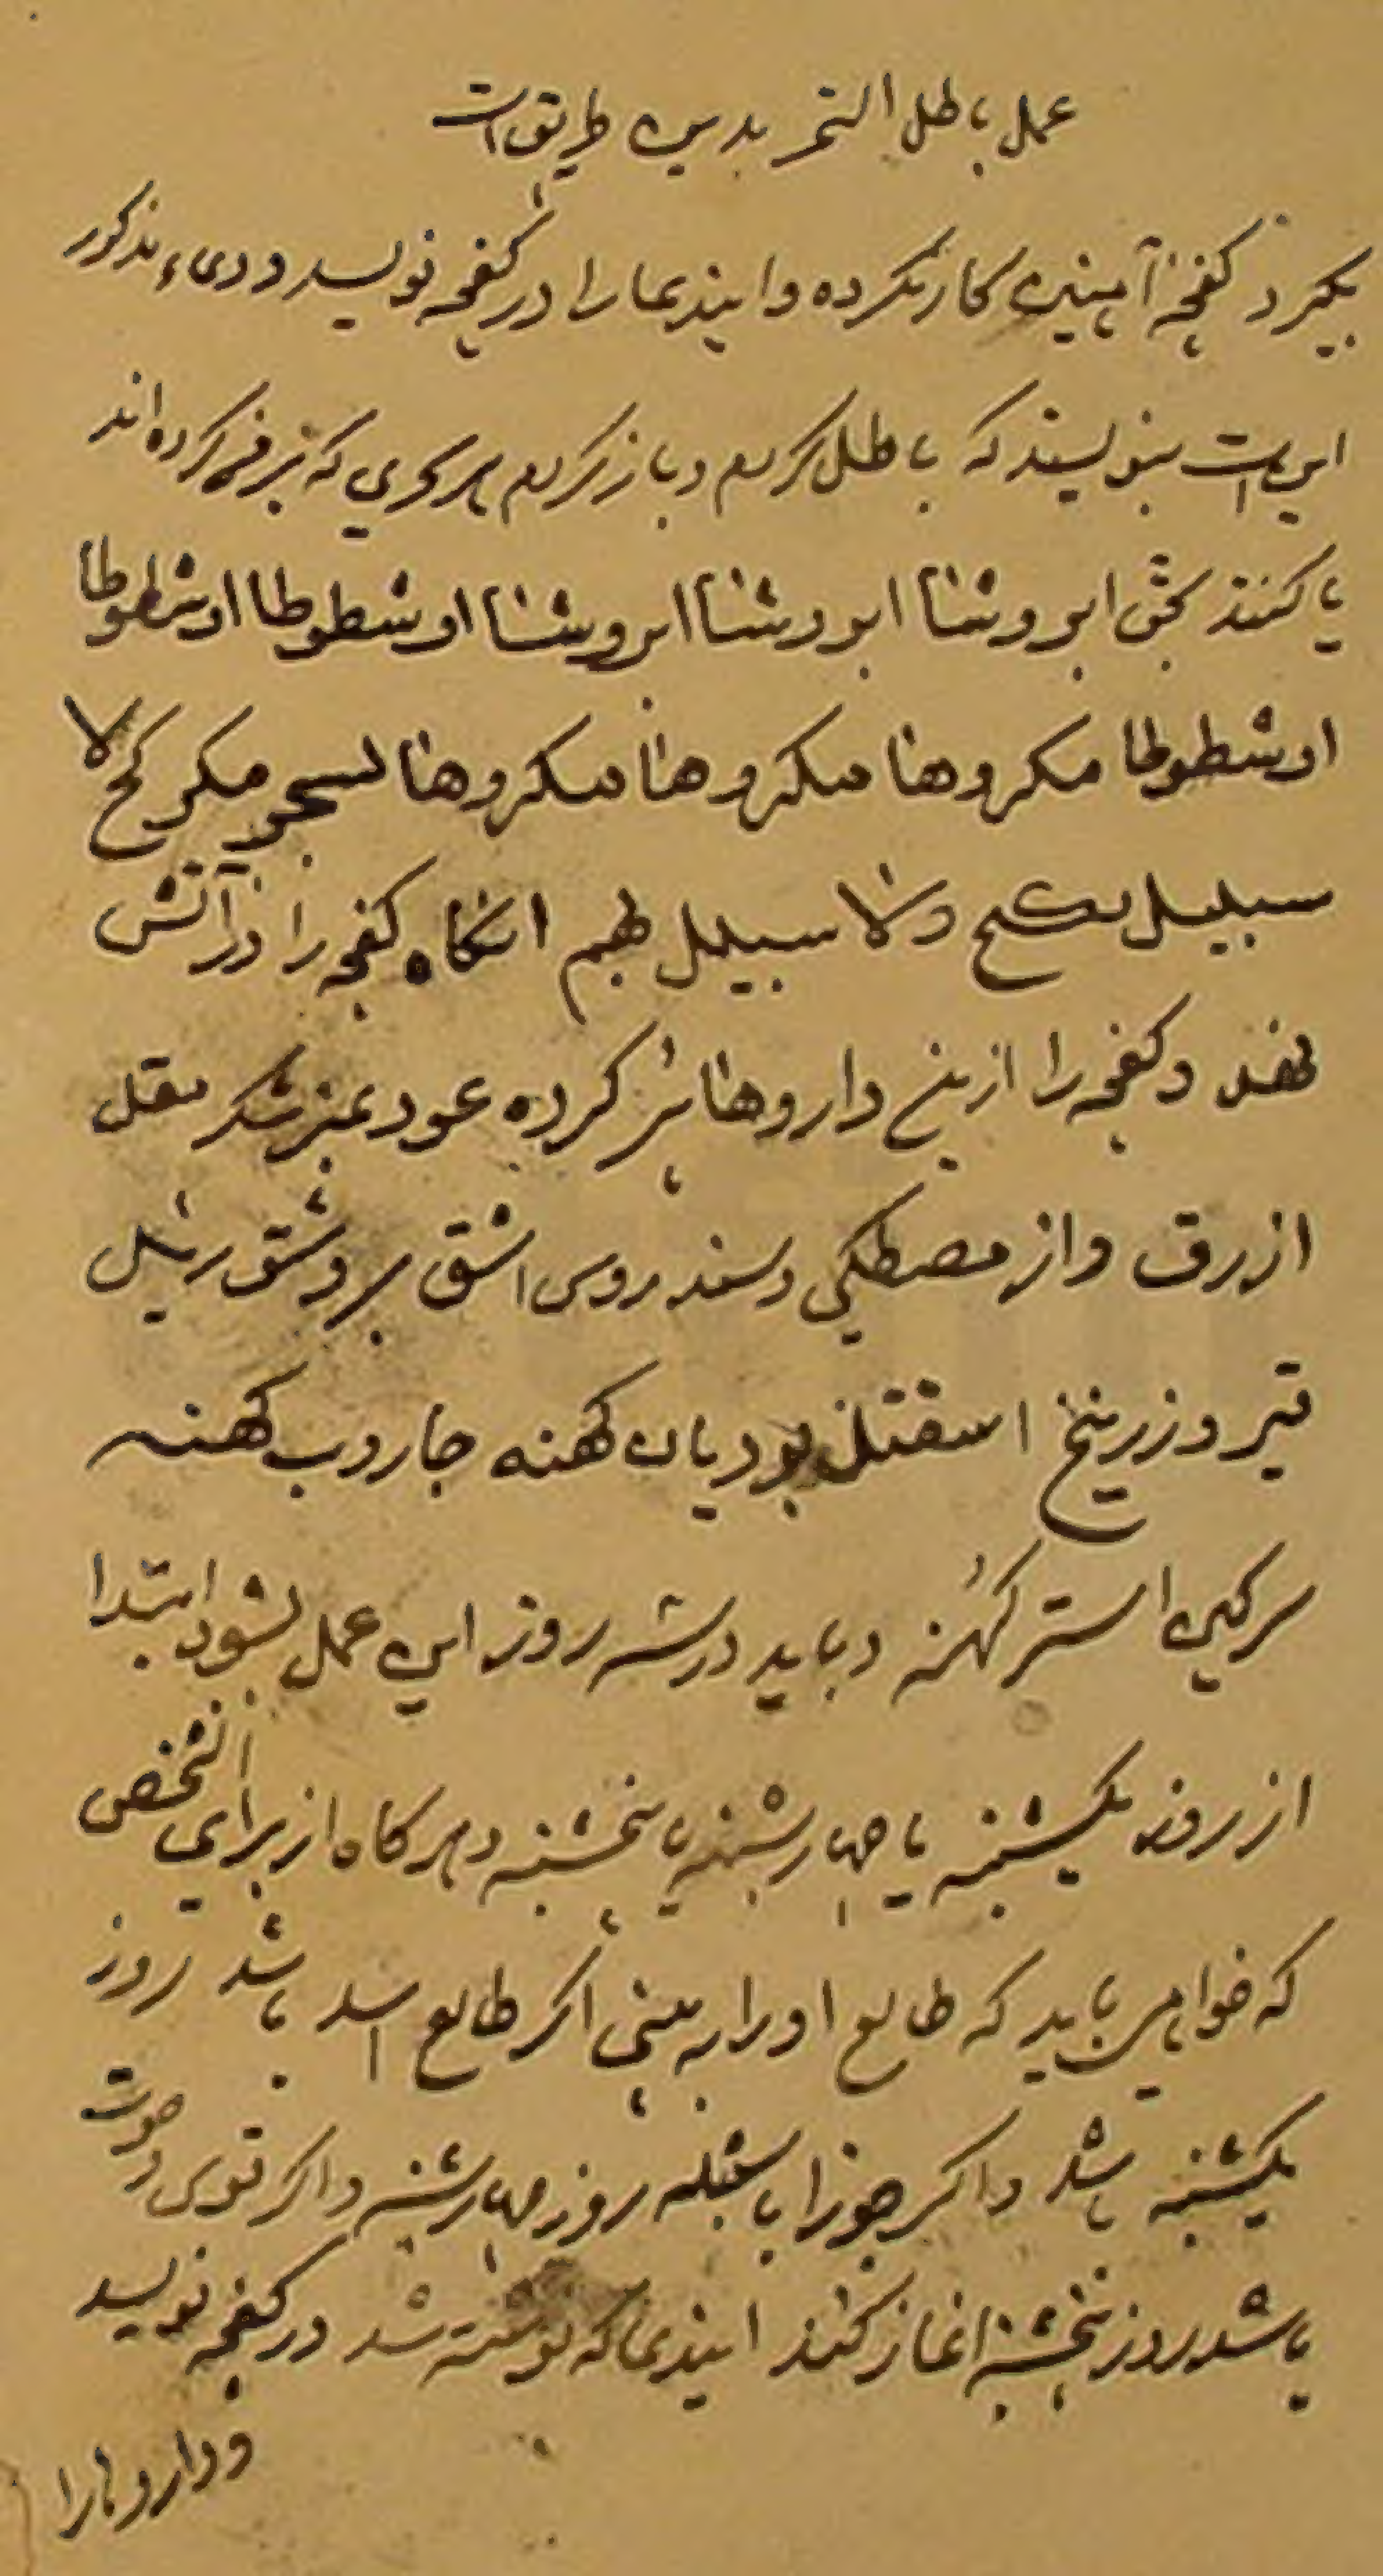 عمل باطل السحر بدین طریق است
بکیرد کفچهٔ آهنین کار نکرده و ایندعا را در کفچه نویسد و دعاء مذکور
این است بنویسند که باطل کردم و باز کردم هر سحری که بر فلان کرده اند
یا کنند بحق ابروشنا ابروشنا ابروشنا اوشطوطا اوشطوطا
اوشطوطا مکروهنا مکروهنا مکروهنا مکر لا
سبیل ولا سبیل لهم انکاه کفچه را در آتش
نهند و کفچه را ازین داروها پر کرده عود عنبر شکر مقل
ازرق و از مصطکی و سندروس اشق
قیر و زرنیخ بوریای کهنه جاروب کهنه
سرکین استر کهنه و باید در سه روز این عمل بشود ابتدا
از روز یکشنبه یا چهارشنبه یا پنجشنبه و هر کاه از برای آنشخص
که خواهی باید که طالع او را به بینی اکر طالع اسد باشد روز
یکشنبه باشد و اکر جوزا یا سنبله روز چهارشنبه و اکر قوس و حوت
باشد روز پنجشنبه اغاز کند ایندعا که نوشته شد در کفچه نویسد
و داروها را